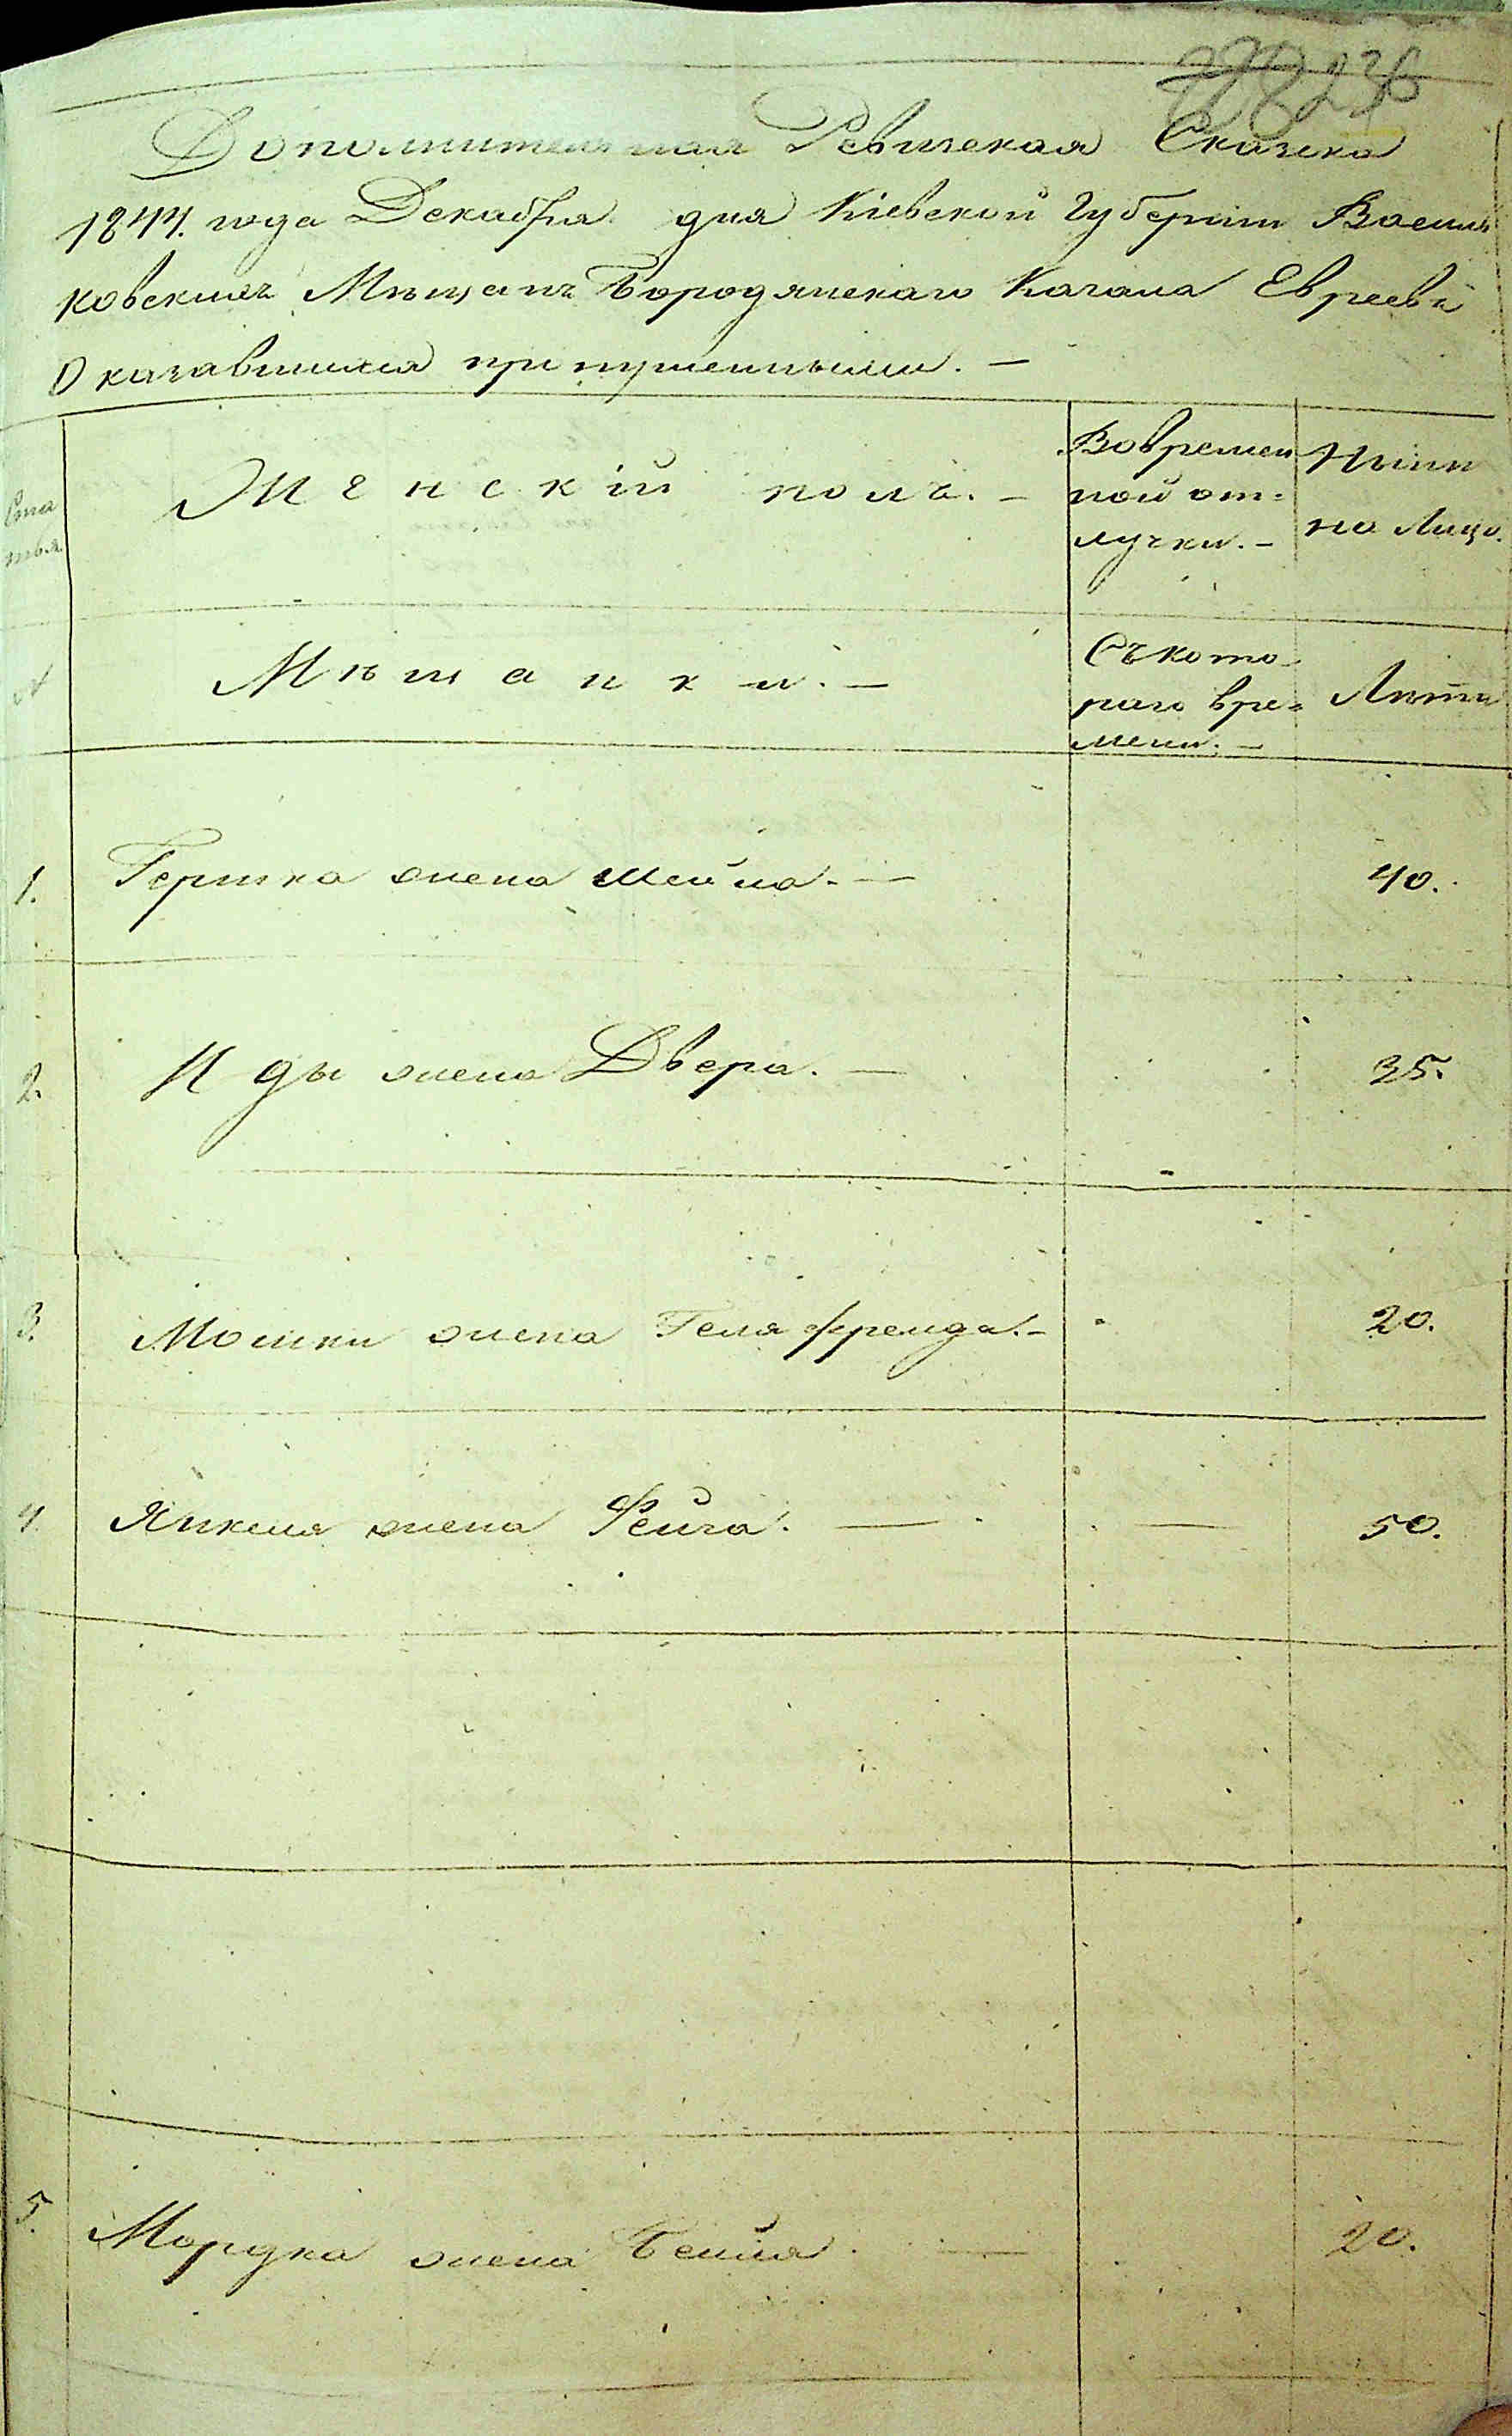 236
Дополнительная Ревизская Сказка
1844. года Декабря дня Кіевской Губерніи Василь
ковскихъ Мѣщанъ Бородянскаго Кагала Евреевъ
Оказавшимся пропущенными. —
Ста
тья
Женскій полъ. —
Вовремен
ной от=
лучки. —
Нынѣ
на Лицо.
№
Мѣщанки. —
Съкото
раго вре=
мени. —
Лѣта
1. Гершка жена Шейна. — 40.
2. Иды жена Двера. — 35.
3. Мошки жена Геля фрейда. — 20.
4. Янкеля жена Фейга. — — 50.
5. Мордка жена Бейла. — 20.